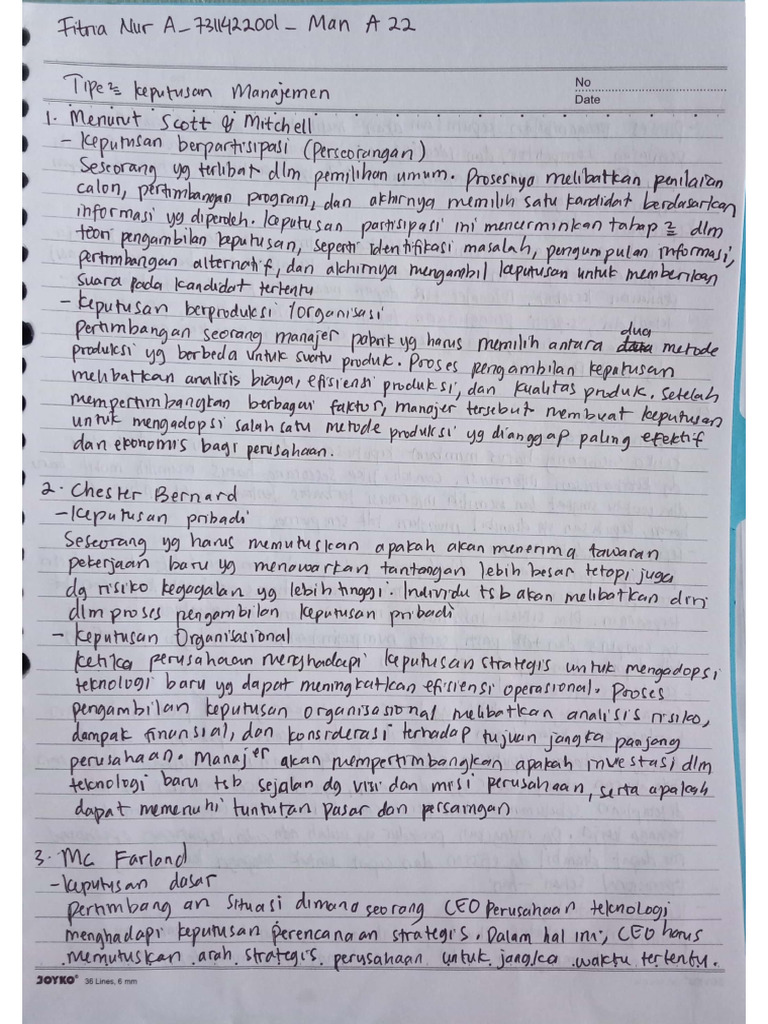 Fitria Nur A_7311422001_ Man A 22
No
Date
Tipe² keputusan Manajemen
1. Menurut Scott & Mitchell
- Keputusan berpartisipasi (Perseorangan)
Seseorang yg terlibat dlm pemilihan umum. Prosesnya melibatkan penilaian
calon, pertimbangan program, dan akhirnya memilih satu kandidat berdasarkan
informasi yg diperoleh. Keputusan partisipasi ini mencerminkan tahap² dlm
teori pengambilan keputusan, seperti identifikasi masalah, pengumpulan informasi,
pertimbangan alternatif, dan akhirnya mengambil keputusan untuk memberikan
suara pada kandidat tertentu
- Keputusan berproduksi /organisasi
Pertimbangan seorang manajer pabrik yg harus memilih antara dua metode
produksi yg berbeda untuk suatu produk. Proses pengambilan keputusan
melibatkan analisis biaya, efisiensi produksi, dan kualitas produk. Setelah
mempertimbangkan berbagai faktor, manajer tersebut membuat keputusan
untuk mengadopsi salah satu metode produksi yg dianggap paling efektif
dan ekonomis bagi perusahaan.
2. Chester Bernard
- Keputusan pribadi
Seseorang yg harus memutuskan apakah akan menerima tawaran
pekerjaan baru yg menawarkan tantangan lebih besar tetapi juga
dg risiko kegagalan yg lebih tinggi. Individu tsb akan melibatkan diri
dlm proses pengambilan keputusan pribadi
- Keputusan Organisasional
Ketika perusahaan menghadapi keputusan strategis untuk mengadopsi
teknologi baru yg dapat meningkatkan efisiensi operasional. Proses
pengambilan keputusan organisasional melibatkan analisis risiko,
dampak finansial, dan konsiderasi terhadap tujuan jangka panjang
perusahaan. Manajer akan mempertimbangkan apakah investasi dlm
teknologi baru tsb sejalan dg visi dan misi perusahaan, serta apakah
dapat memenuhi tuntutan pasar dan persaingan
3. Mc Farland
- Keputusan dasar
pertimbang an situasi dimana seorang CEO perusahaan teknologi
menghadapi keputusan perencanaan strategis. Dalam hal ini, CEO harus
memutuskan arah strategis perusahaan untuk jangka waktu tertentu.
JOYKO® 36 Lines, 6 mm